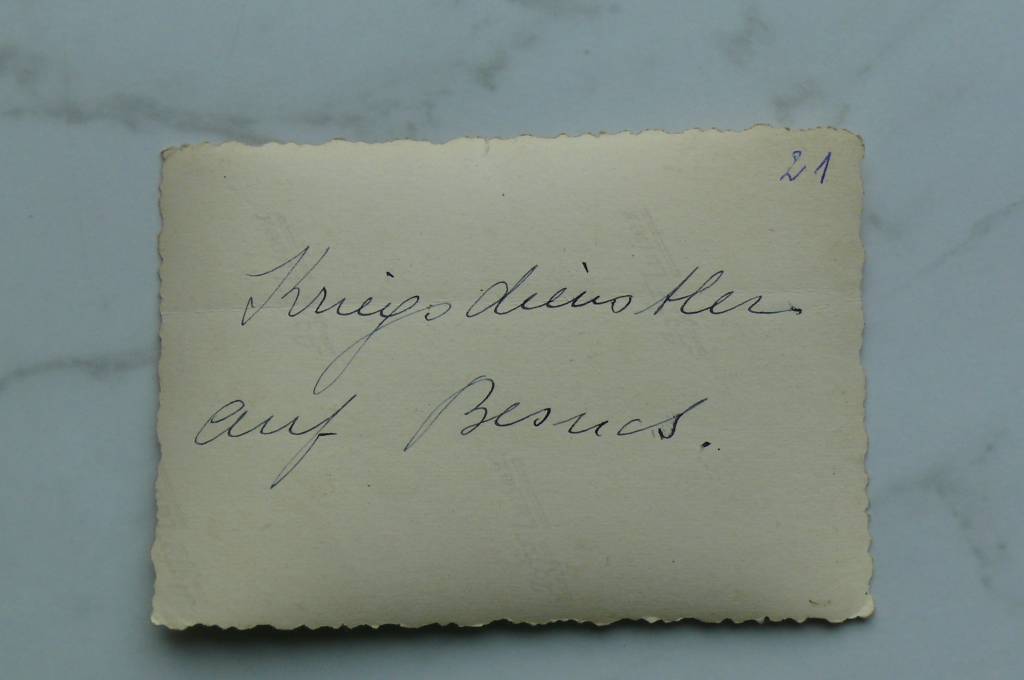 21
Kriegsdienstler
auf Besuch.